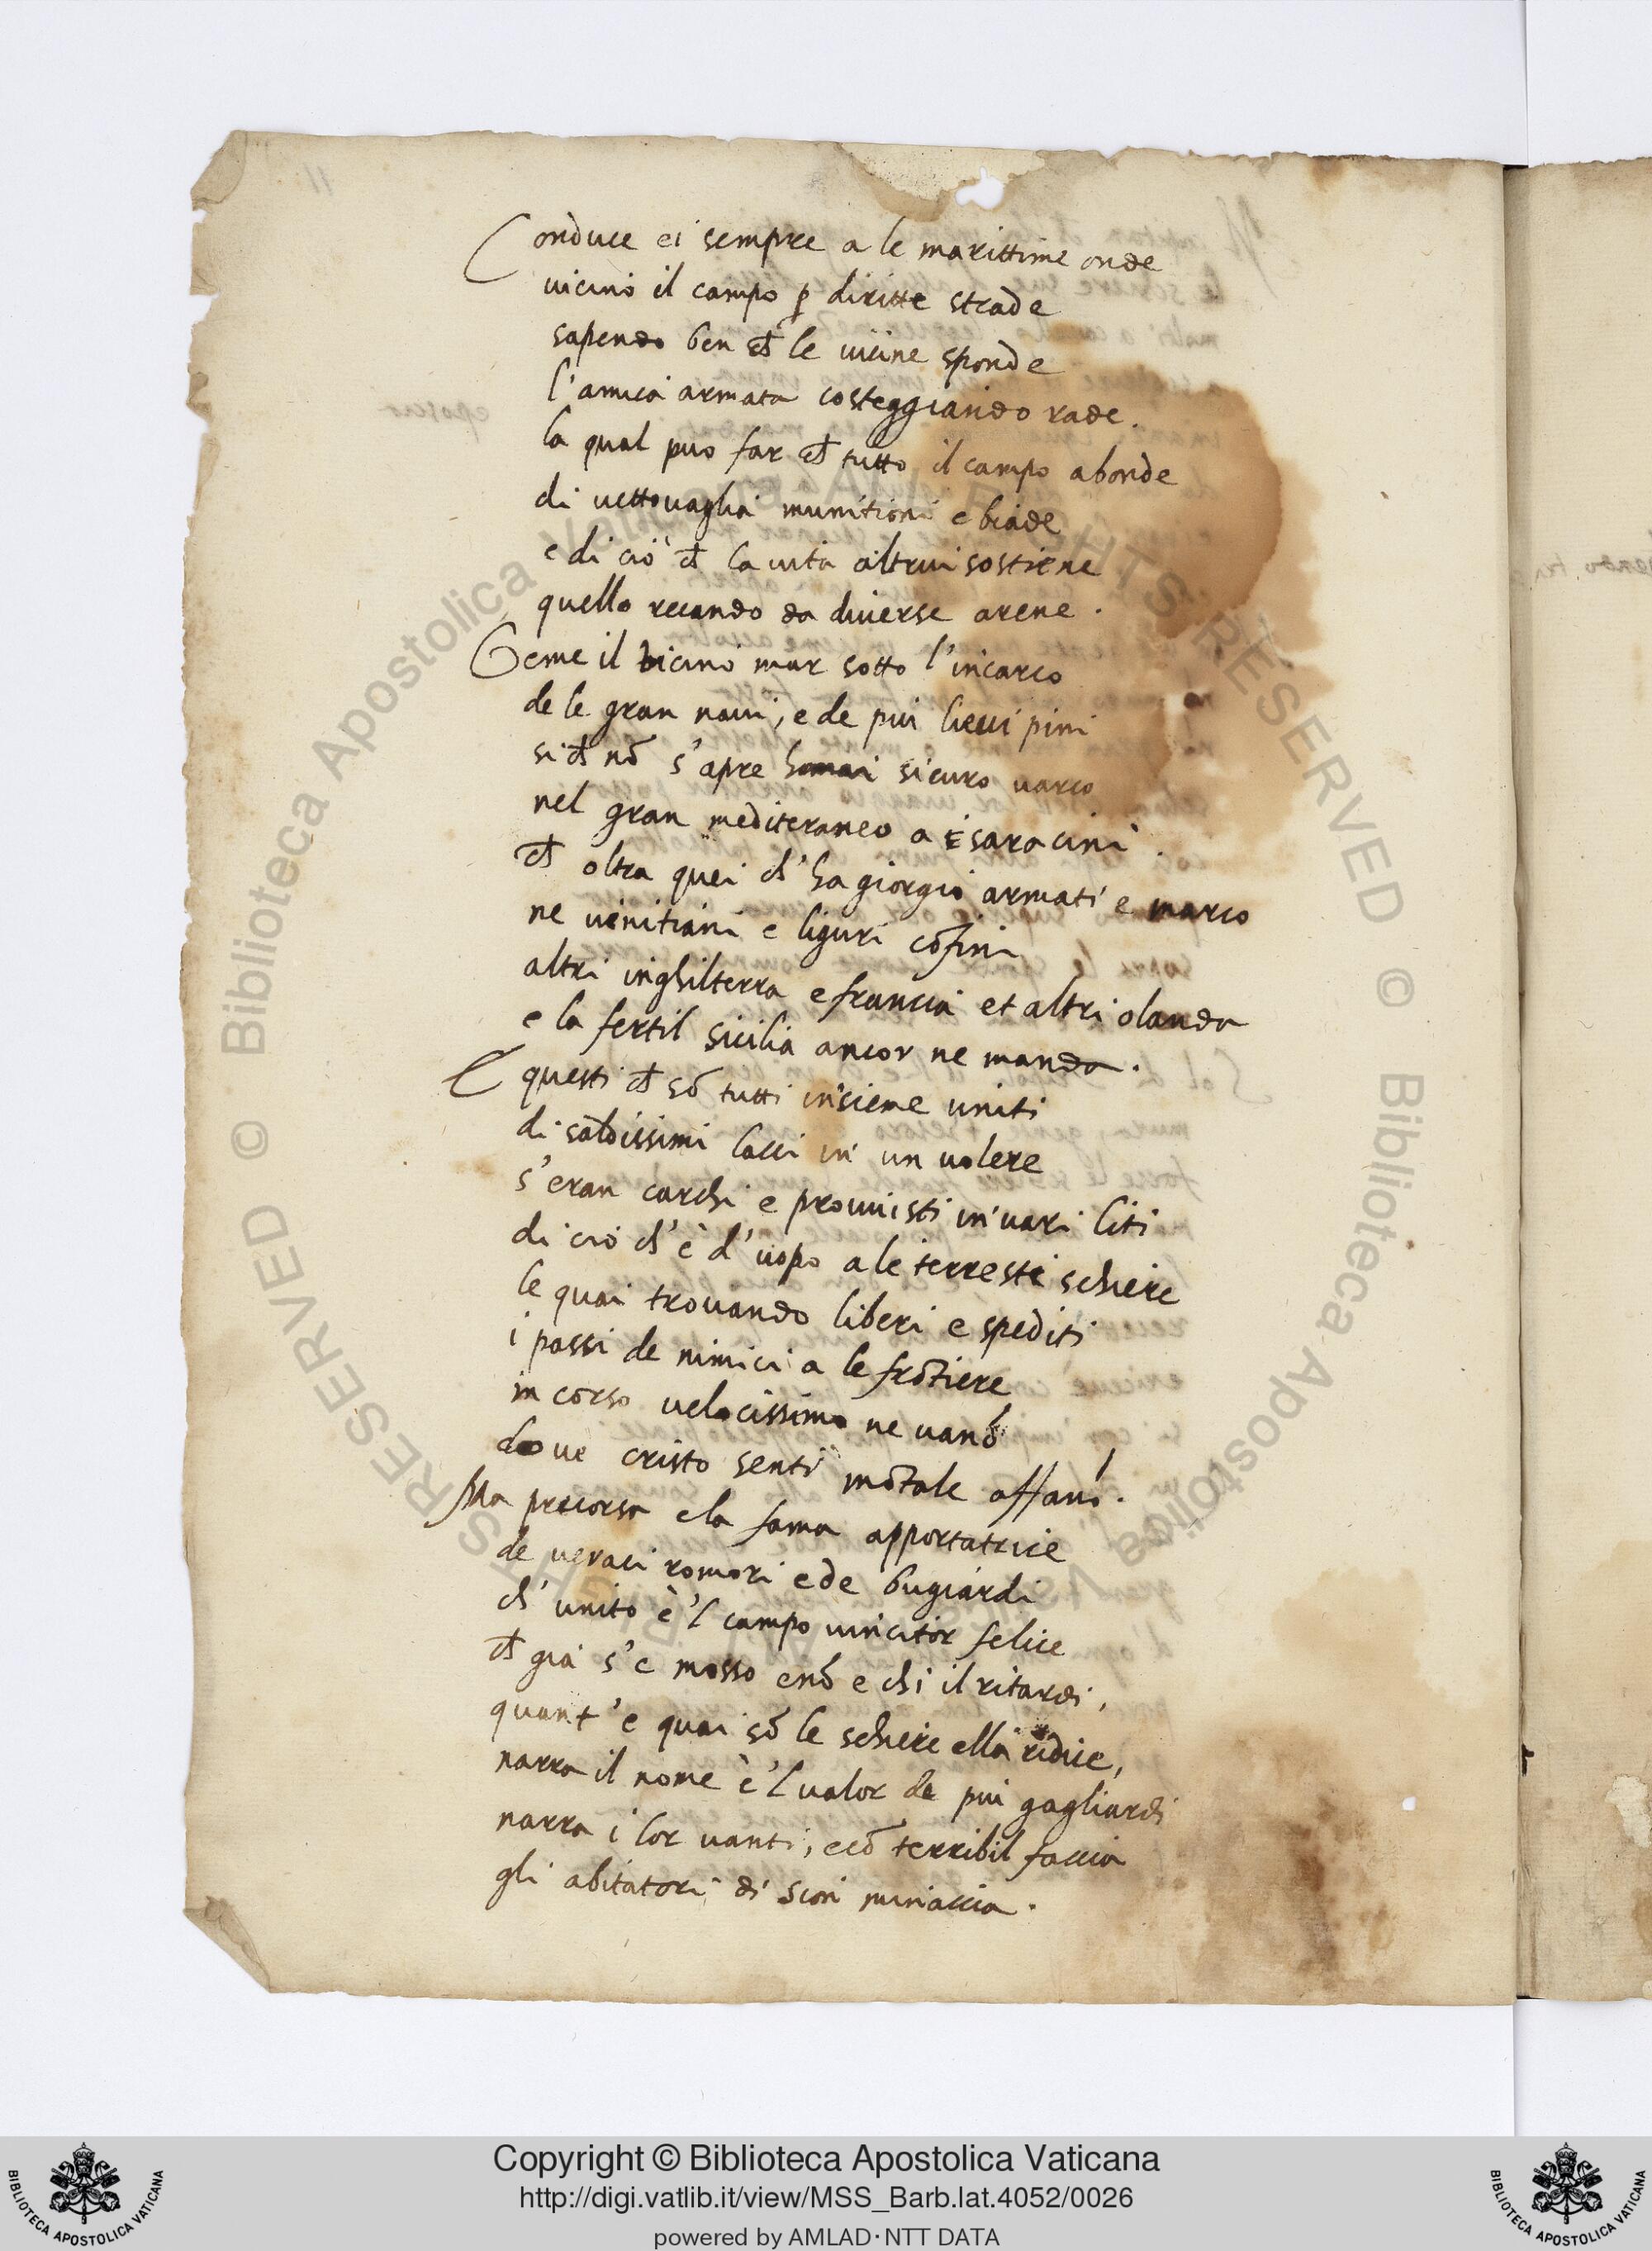 Conduce ei sempre a le marittime onde
uicino il campo ꝑ diritte strade
sapendo ben ch̃ le uicine sponde
l'amica armata costeggiando rade.
la qual puo far ch̃ tutto il campo abonde
di uettouaglia munitioni e biade
e di ciò ch̃ la uita altrui sostiene
quello recando da diuerse arene.
Geme il vicino mar sotto l'incarco
de le gran naui, e de piu lieui pini
si ch̃ nõ s'apre homai sicuro uarco
nel gran mediteraneo a i saracini.
ch̃ oltra quei ch'ha giorgio armati e marco
ne uenitiani e liguri cõfini
altri inghilterra e francia et altri olanda
e la fertil sicilia ancor ne manda.
E questi ch̃ sõ tutti insieme uniti
di saldissimi lacci in un uolere
s'eran carchi e prouuisti in uari liti
di ciò ch'è d'uopo a le terresti schiere
le quai trouando liberi e spediti
i passi de nimici a le frõtiere
in corso uelocissimo ne uanõ
doue cristo sentì mõtale affanõ.
Ma precorsa e la fama apportatrice
de ueraci romori e de bugiardi
ch'unito è'l campo uincitor felice
ch̃ già s'e mosso e nõ e chi il ritardi,
quant'e quai sõ le schiere ella ridice,
narra il nome e'l ualor de piu gagliardi
narra i lor uanti, e cõ terribil faccia
gli abitatori di sion minaccia.
Copyright © Biblioteca Apostolica Vaticana
http://digi.vatlib.it/view/MSS_Barb.lat.4052/0026
powered by AMLAD·NTT DATA
BIBLIOTECA APOSTOLICA VATICANA
BIBLIOTECA APOSTOLICA VATICANA
© Biblioteca Apostolica Vaticana ALL RIGHTS RESERVED
© Biblioteca Apostolica Vaticana ALL RIGHTS RESERVED